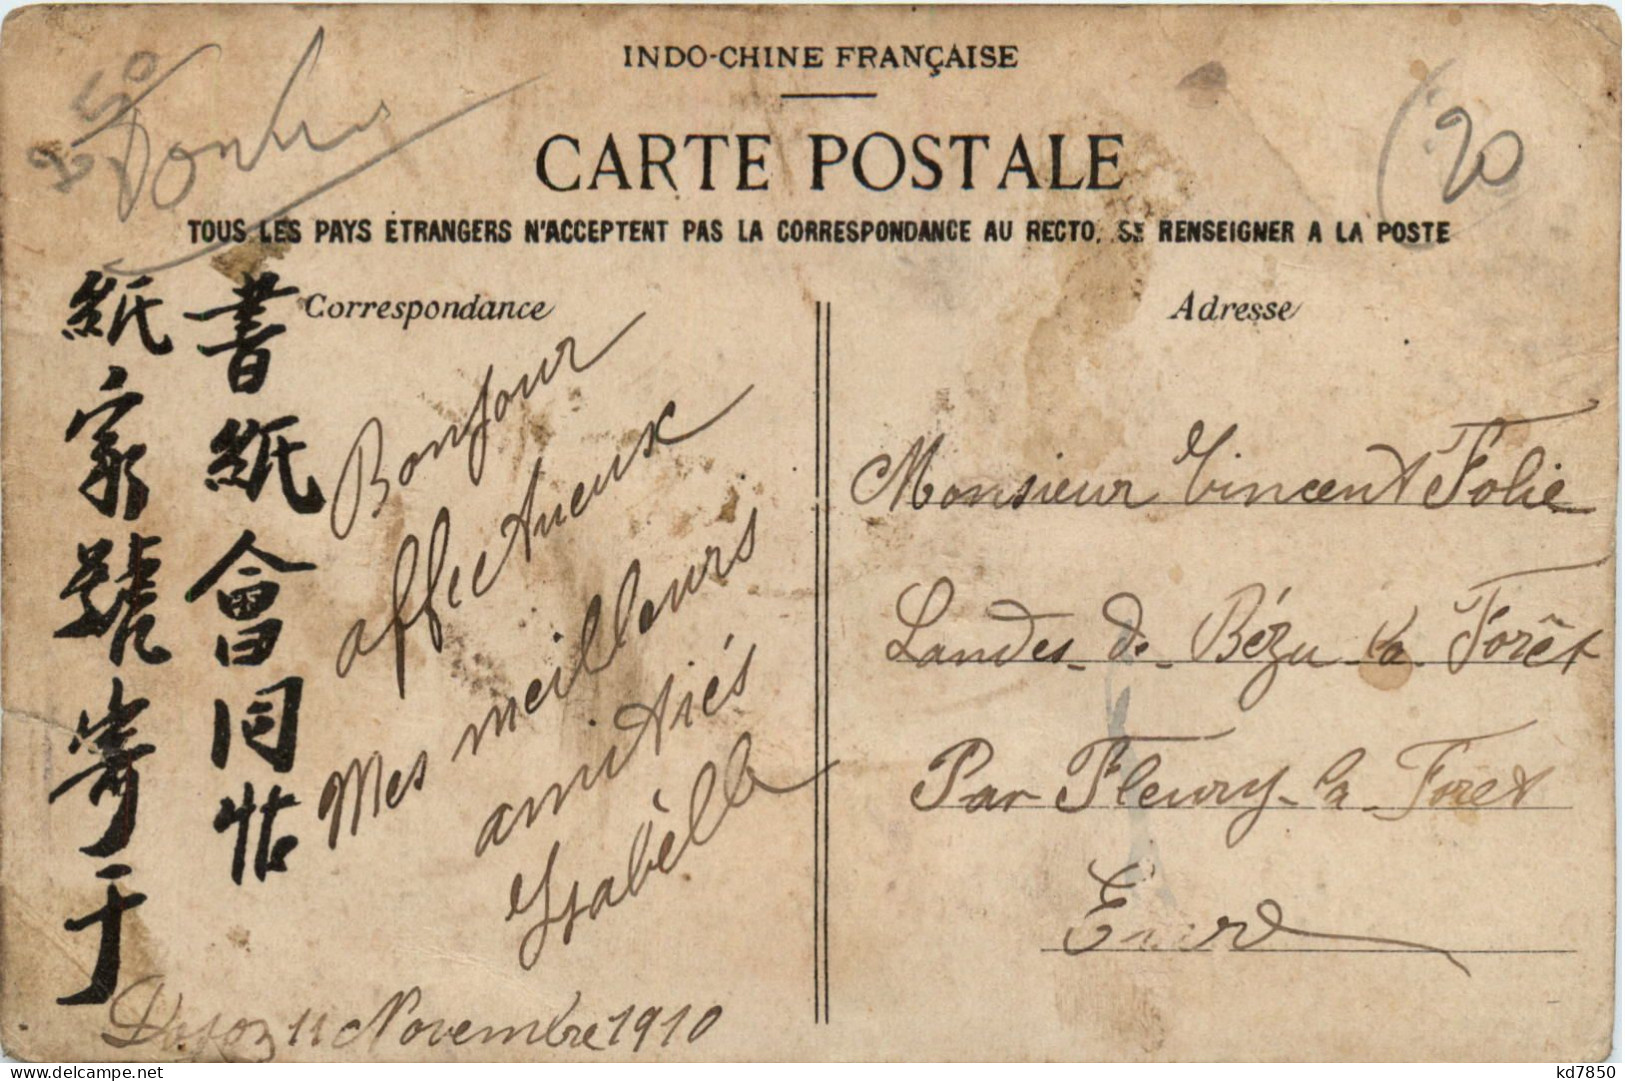 INDO-CHINE FRANÇAISE
CARTE POSTALE
TOUS LES PAYS ÉTRANGERS N'ACCEPTENT PAS LA CORRESPONDANCE AU RECTO. SE RENSEIGNER A LA POSTE
2 50
Tonkin
20
Correspondance
Adresse
書紙會同帖
紙家號寄于
Bonjour
affectueux
Mes meilleurs
amitiés
Ysabèlle
11 Novembre 1910
Monsieur Vincent Folie
Landes de Bézu la Forêt
Par Fleury la Foret
Eure
kd7850